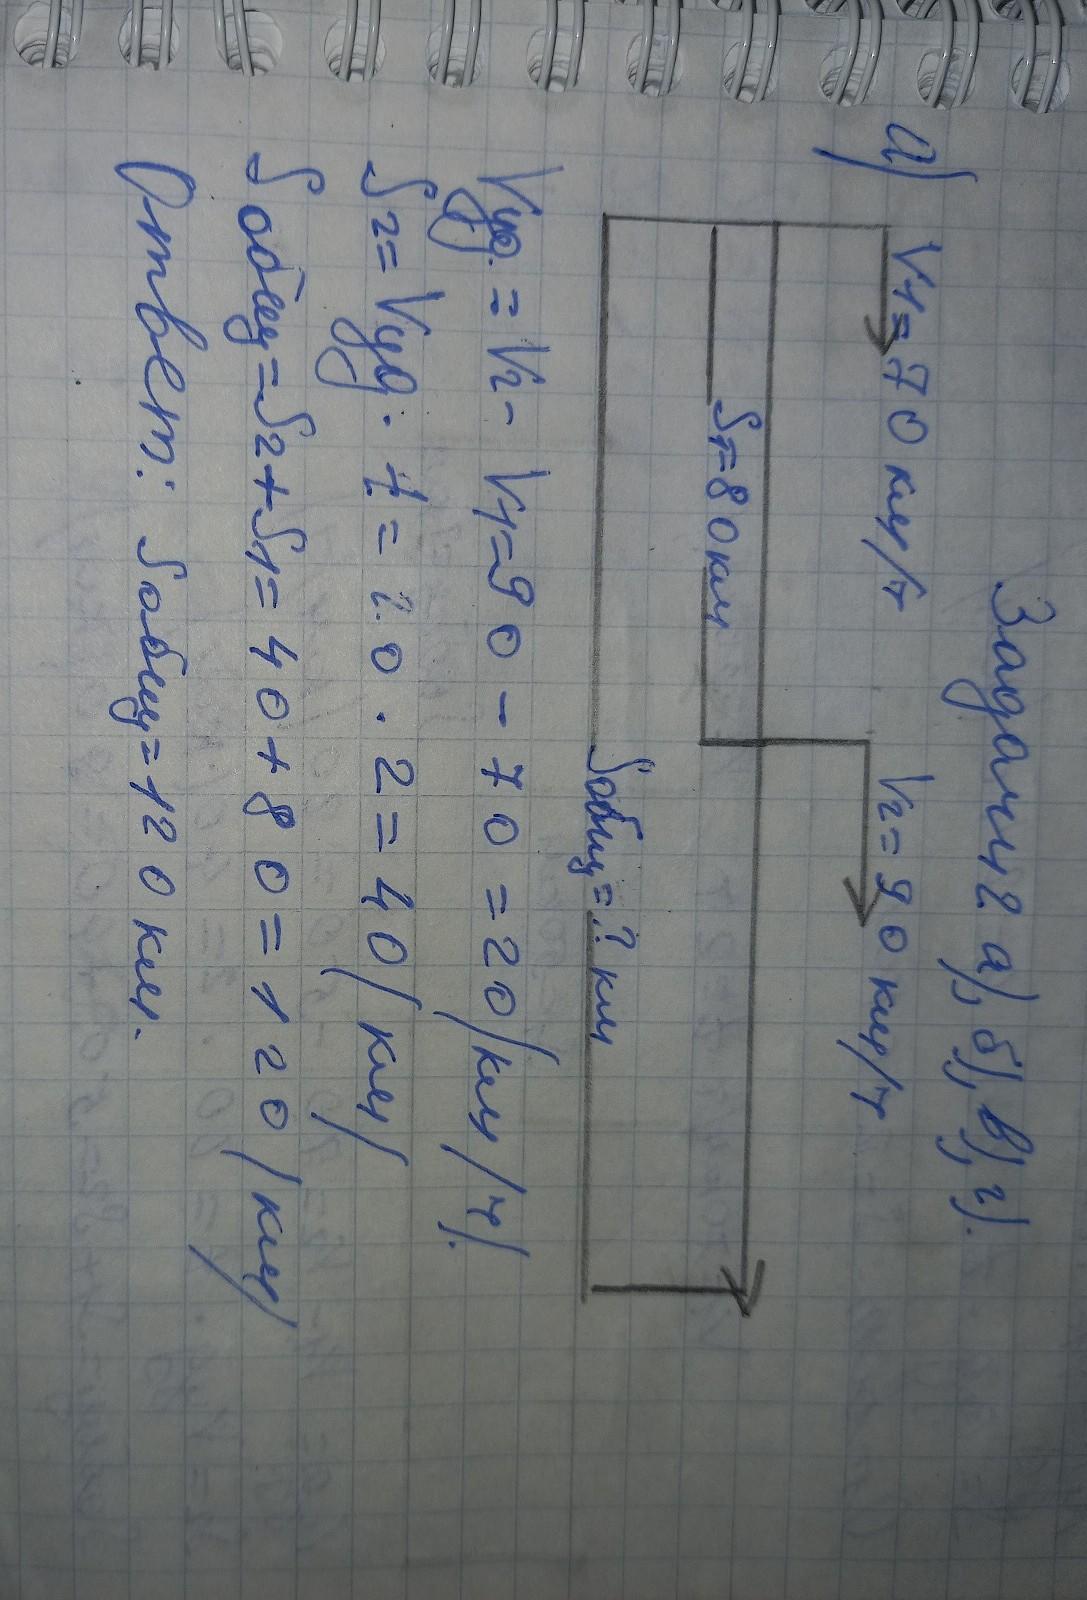 Задачи 2 а), б), в), г).
а) V1=70 км/ч V2=90 км/ч
S1=80км
Sобщ=? км
Vуд.=V2-V1=90-70=20/км/ч/.
S2=Vуд.·t=20·2=40/км/
Sобщ=S2+S1=40+80=120/км/
Ответ: Sобщ=120 км.